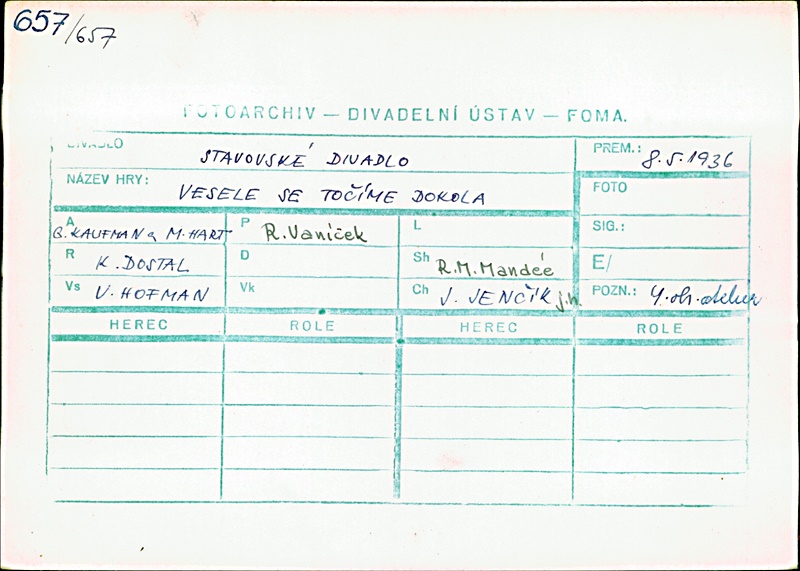 657/657
FOTOARCHIV — DIVADELNÍ ÚSTAV — FOMA.
DIVADLO STAVOVSKÉ DIVADLO PREM.: 8.5.1936
NÁZEV HRY: VESELE SE TOČÍME DOKOLA FOTO
A G. KAUFMAN a M. HART P R. Vaníček L SIG.:
R K. DOSTAL D Sh R.M. Mandée E/
Vs V. HOFMAN Vk Ch J. JENČÍK j.h. POZN.: 4. ob.
HEREC ROLE HEREC ROLE